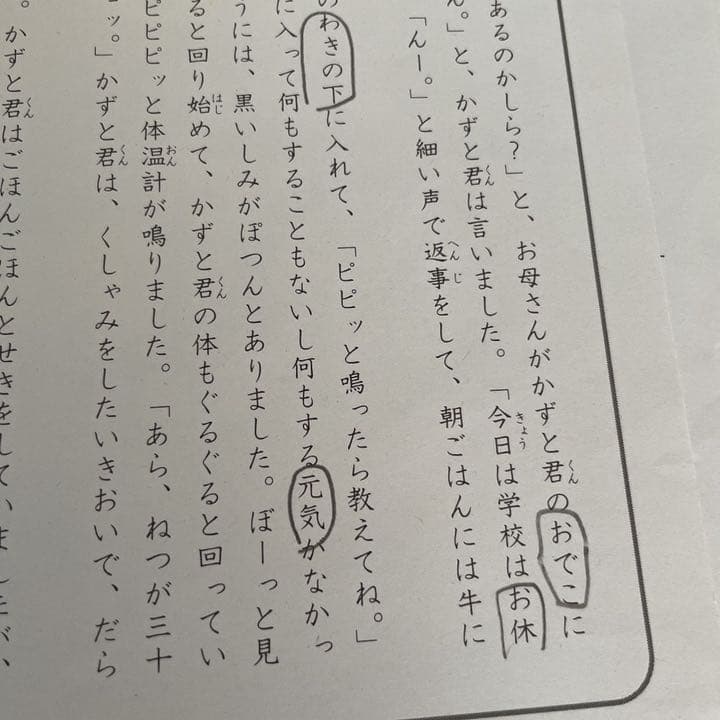 あるのかしら?」と、お母さんがかずと君のおでこに
ん。」と、かずと君は言いました。「今日は学校はお休
「んー。」と細い声で返事をして、朝ごはんには牛に
のわきの下に入れて、「ピピッと鳴ったら教えてね。」
に入って何もすることもないし何もする元気がなかっ
うには、黒いしみがぽつんとありました。ぼーっと見
ると回り始めて、かずと君の体もぐるぐると回ってい
ピピピッと体温計が鳴りました。「あら、ねつが三十
ッ。」かずと君は、くしゃみをしたいきおいで、だら
。かずと君はごほんごほんとせきをしていましたが、